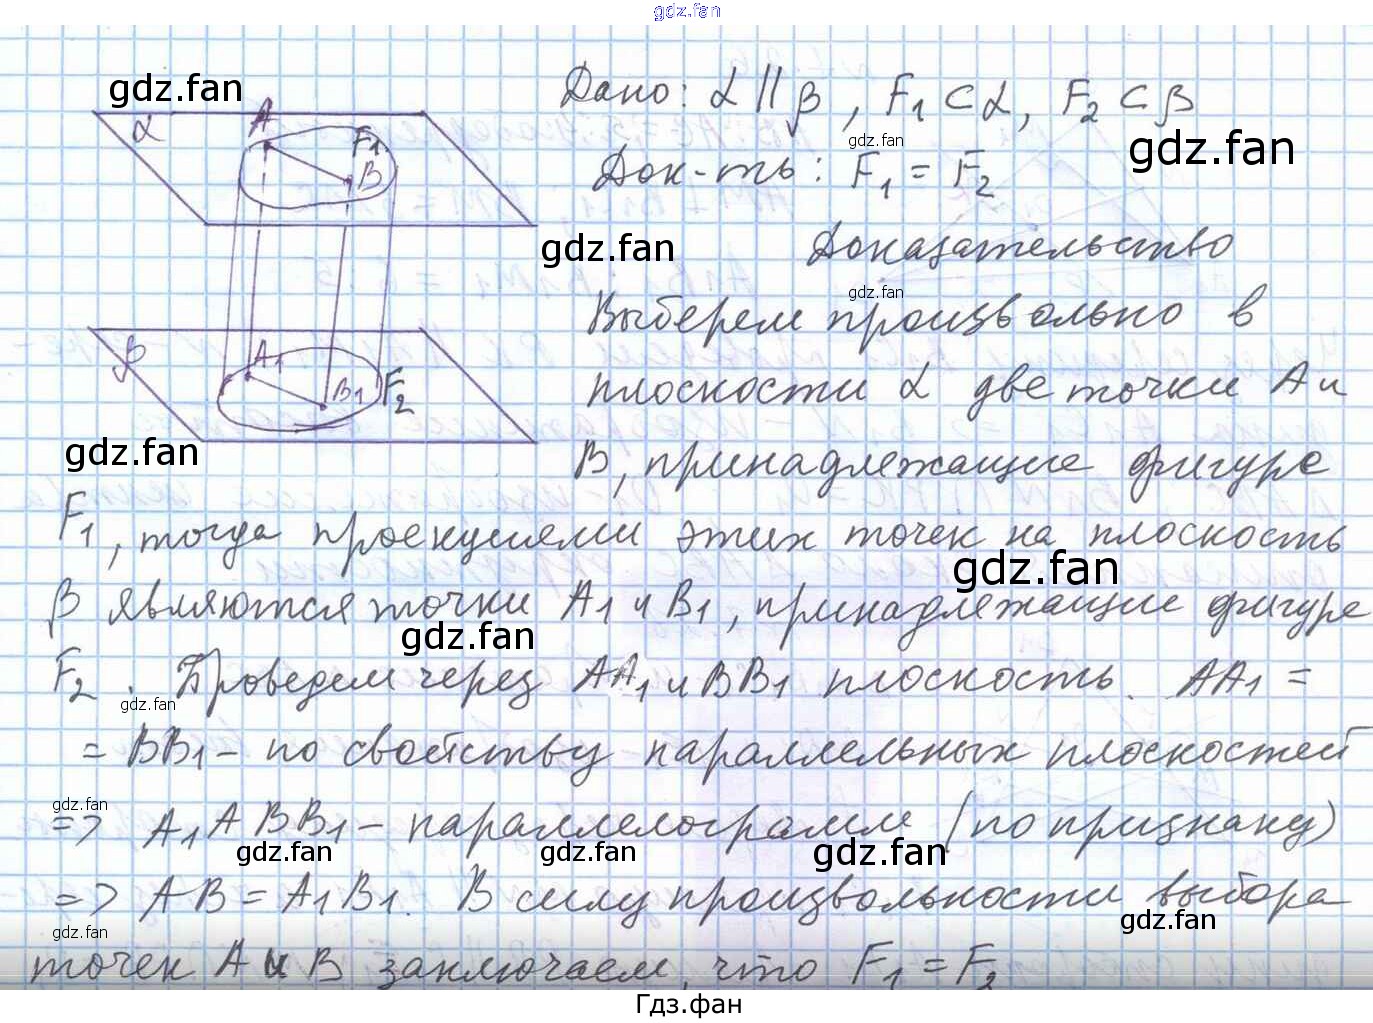 gdz.fan
gdz.fan
A
α
F1
B
Дано: α || β, F1 ⊂ α, F2 ⊂ β
gdz.fan
gdz.fan
Док-ть: F1 = F2
gdz.fan
Доказательство
gdz.fan
Выберем произвольно в
β
A1
B1
F2
плоскости α две точки A и
gdz.fan
B, принадлежащие фигуре
F1, тогда проекциями этих точек на плоскость
gdz.fan
β являются точки A1 и B1, принадлежащие фигуре
gdz.fan
F2. Проведем через AA1 и BB1 плоскость. AA1 =
gdz.fan
= BB1 – по свойству параллельных плоскостей
gdz.fan
=> A1ABB1 – параллелограмм (по признаку)
gdz.fan
gdz.fan
gdz.fan
=> AB = A1B1. В силу произвольности выбора
gdz.fan
gdz.fan
точек A и B заключаем, что F1 = F2
Гдз.фан